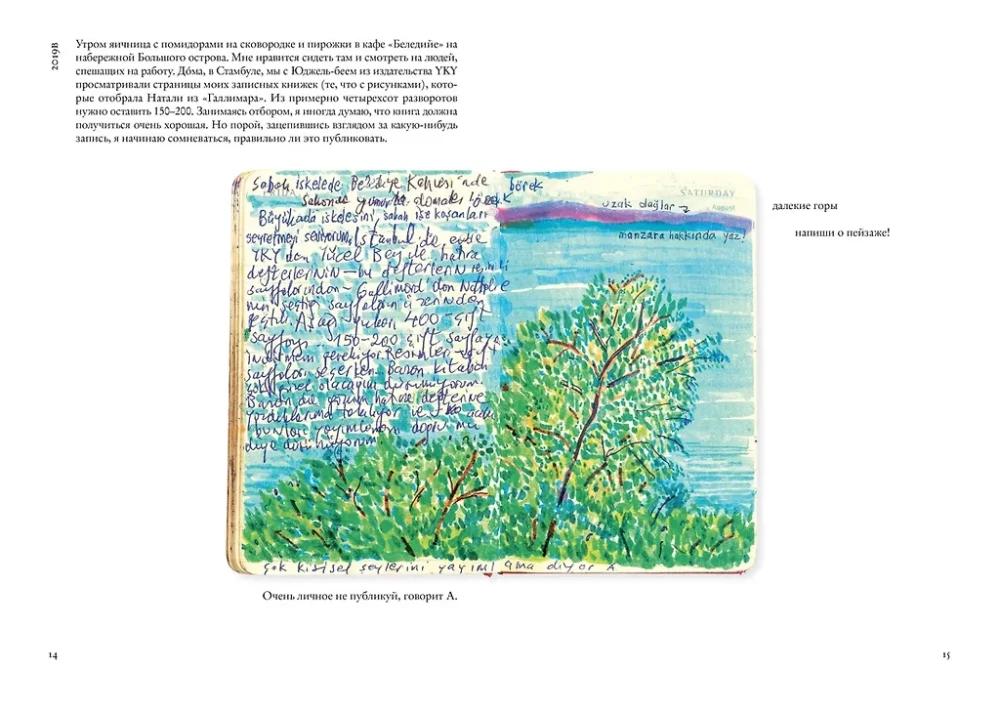 2019В
Утром яичница с помидорами на сковородке и пирожки в кафе «Беледийе» на
набережной Большого острова. Мне нравится сидеть там и смотреть на людей,
спешащих на работу. До́ма, в Стамбуле, мы с Юджель-беем из издательства YKY
просматривали страницы моих записных книжек (те, что с рисунками), кото-
рые отобрала Натали из «Галлимара». Из примерно четырехсот разворотов
нужно оставить 150–200. Занимаясь отбором, я иногда думаю, что книга должна
получиться очень хорошая. Но порой, зацепившись взглядом за какую-нибудь
запись, я начинаю сомневаться, правильно ли это публиковать.
Sabah iskelede Belediye Kahvesi'nde börek
Sahanda yumurta domates
Büyükada iskelesini, sabah işe koşanları
seyretmeyi seviyorum. İstanbul'da evde
YKY'den Yücel Bey ile hatıra
defterlerinin – bu defterlerin resimli
sayfalarından – Gallimard'dan Nathalie
nin seçtiği sayfaların üzerinden
geçtik. Aşağı yukarı 400 çift
sayfayı 150–200 çift sayfaya
indirmem gerekiyor. Resimler
sayfaları seçerken.. Bazen kitabın
çok güzel olacağını düşünüyorum.
Bazen de gözüm hatıra defterine
yazdıklarıma takılıyor ve
bunları yayımlamam doğru mu
diye düşünüyorum.
SATURDAY
August
uzak dağlar
manzara hakkında yaz!
далекие горы
напиши о пейзаже!
çok kişisel şeylerini yayımlama diyor A
Очень личное не публикуй, говорит А.
14
15